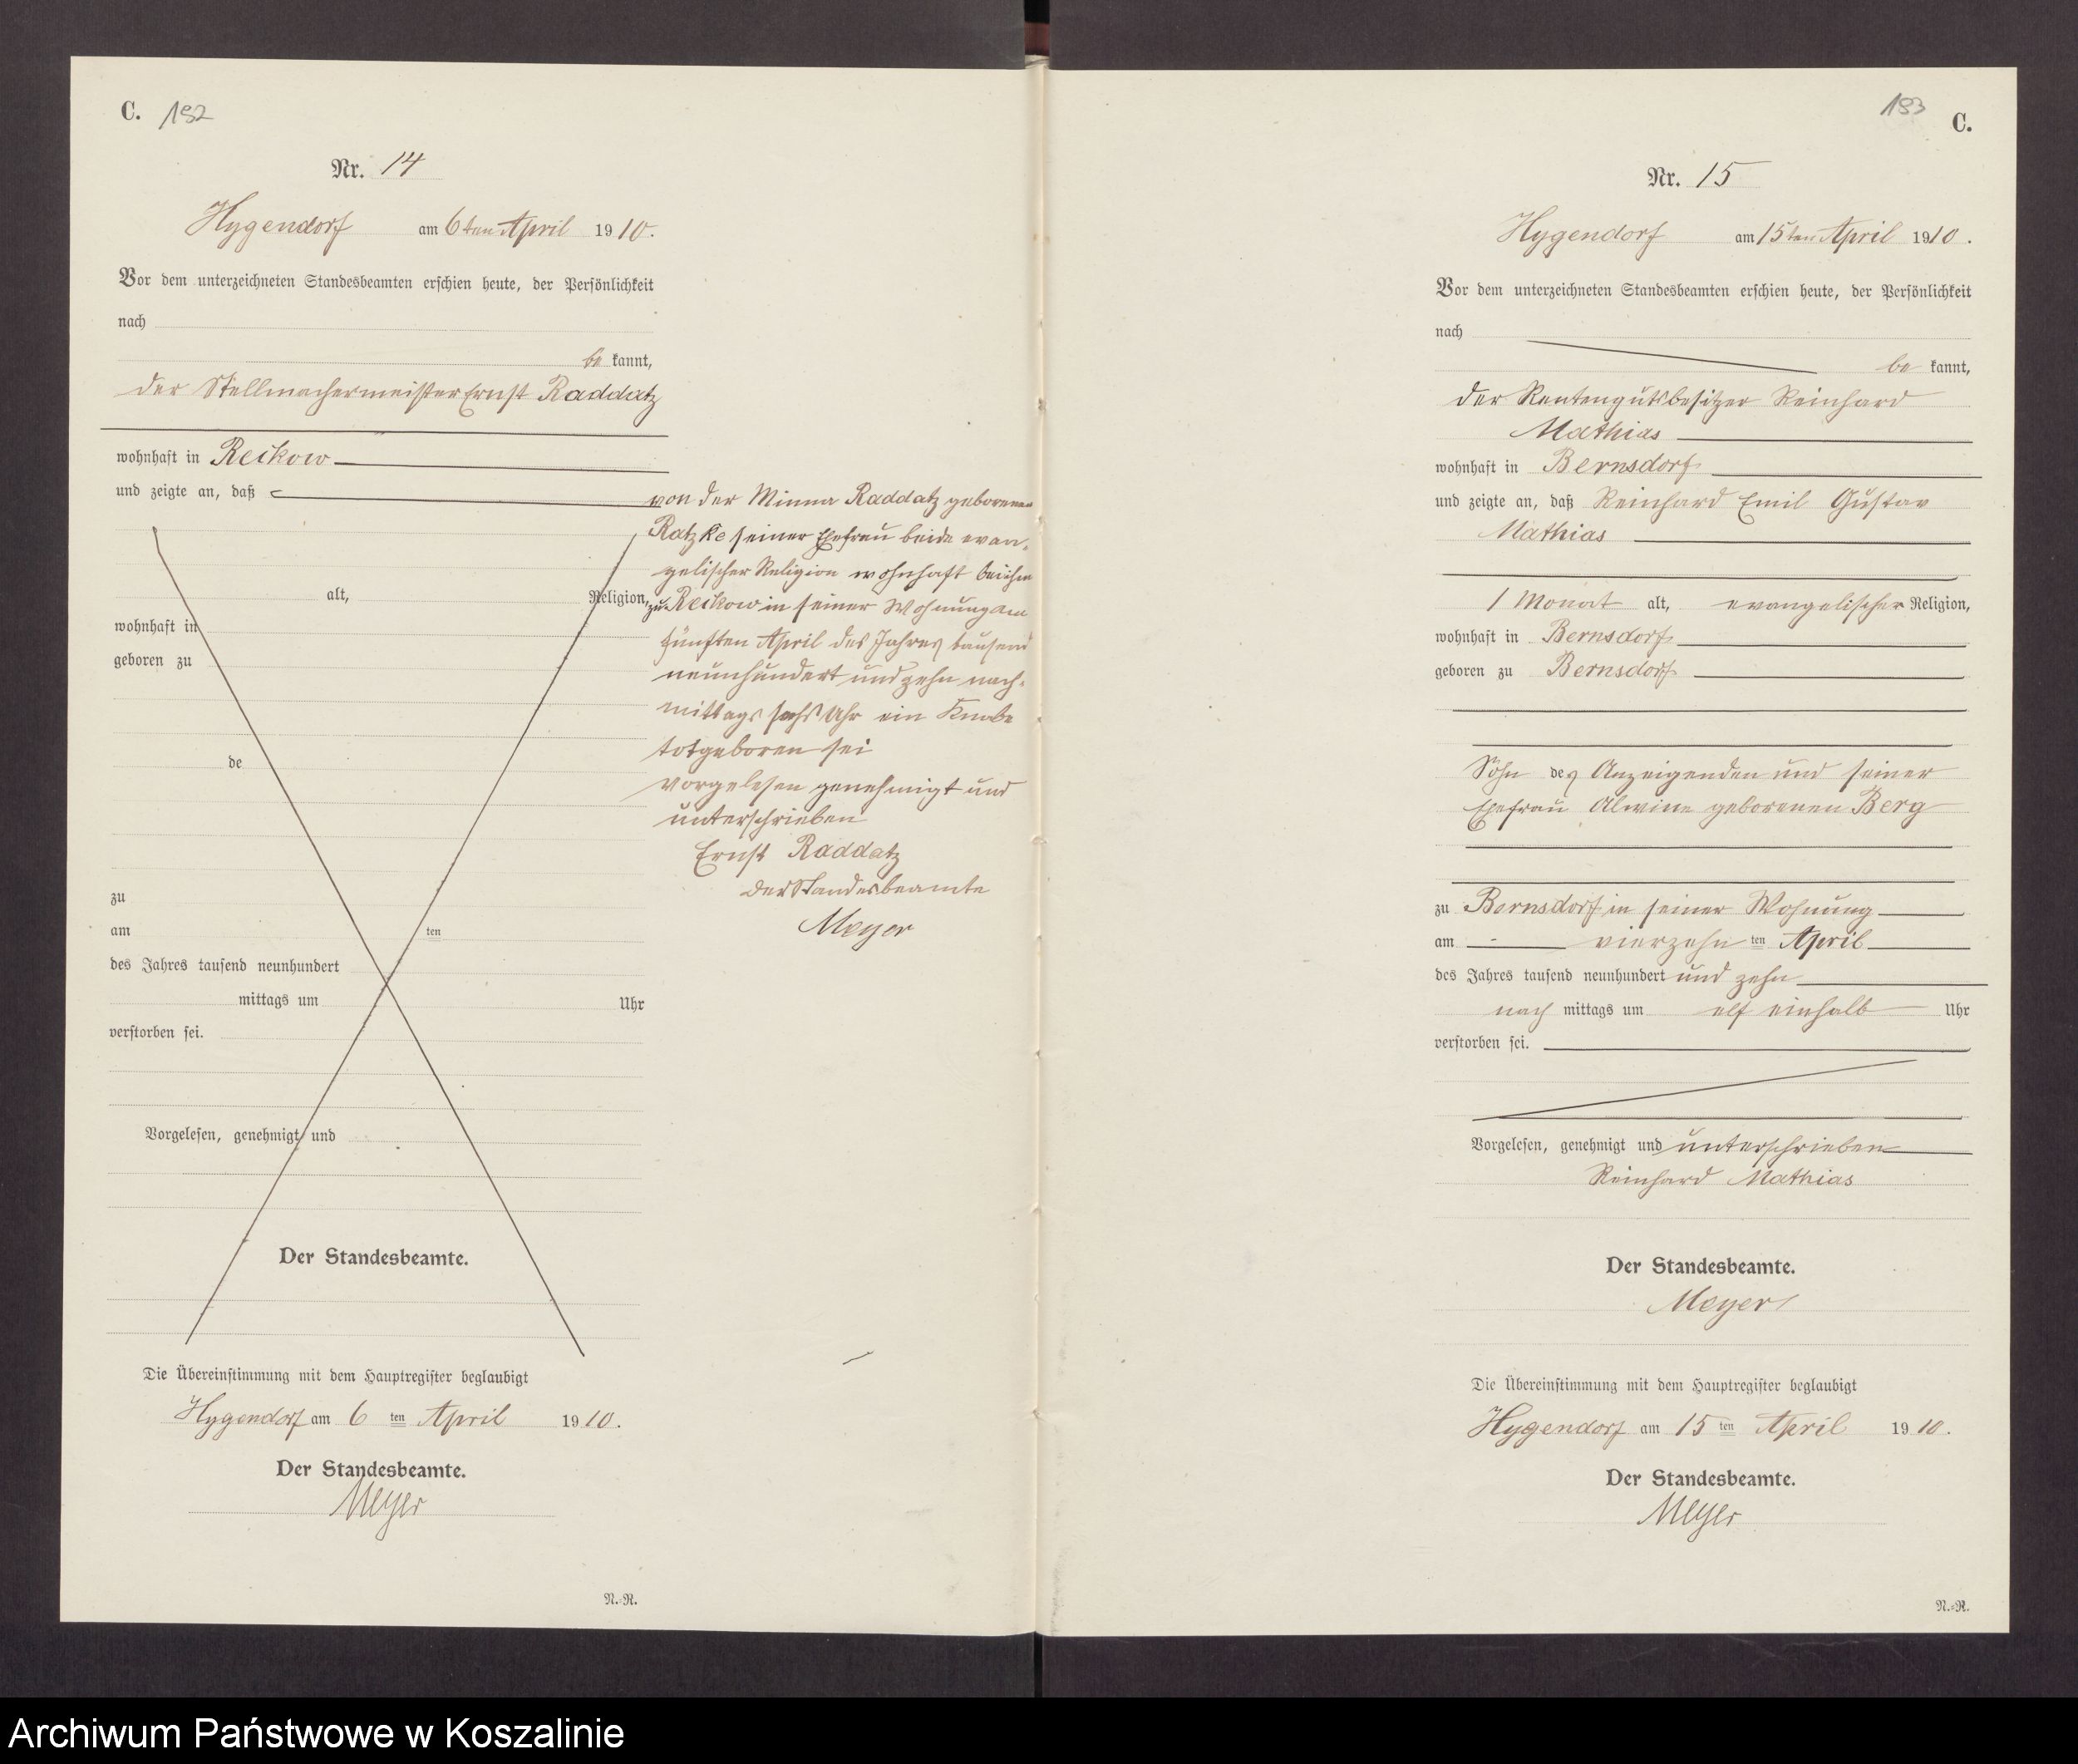 C. 192
Nr. 14
Hygendorf am 6ten April 1910.
Vor dem unterzeichneten Standesbeamten erschien heute, der Persönlichkeit
nach
be kannt,
der Stellmachermeister Ernst Raddatz
wohnhaft in Reikow
und zeigte an, daß
von der Minna Raddatz geborenen
Ratzke seiner Ehefrau beide evan-
gelischer Religion wohnhaft bei ihm
alt, Religion,
zu Reikow in seiner Wohnung am
wohnhaft in
fünften April des Jahres tausend
geboren zu
neunhundert und zehn nach-
mittags sechs Uhr ein Knabe
totgeboren sei
de
vorgelesen genehmigt und
unterschrieben
Ernst Raddatz
der Standesbeamte
Meyer
zu
am ten
des Jahres tausend neunhundert
mittags um Uhr
verstorben sei.
Vorgelesen, genehmigt und
Der Standesbeamte.
Die Übereinstimmung mit dem Hauptregister beglaubigt
Hygendorf am 6 ten April 1910.
Der Standesbeamte.
Meyer
N.=R.
193 C.
Nr. 15
Hygendorf am 15ten April 1910.
Vor dem unterzeichneten Standesbeamten erschien heute, der Persönlichkeit
nach
be kannt,
der Rentengutsbesitzer Reinhard
Mathias
wohnhaft in Bernsdorf
und zeigte an, daß Reinhard Emil Gustav
Mathias
1 Monat alt, evangelischer Religion,
wohnhaft in Bernsdorf
geboren zu Bernsdorf
Sohn des Anzeigenden und seiner
Ehefrau Alwine geborenen Berg
zu Bernsdorf in seiner Wohnung
am vierzehn ten April
des Jahres tausend neunhundert und zehn
nach mittags um elf einhalb Uhr
verstorben sei.
Vorgelesen, genehmigt und unterschrieben
Reinhard Mathias
Der Standesbeamte.
Meyer
Die Übereinstimmung mit dem Hauptregister beglaubigt
Hygendorf am 15 ten April 1910.
Der Standesbeamte.
Meyer
N.=R.
Archiwum Państwowe w Koszalinie